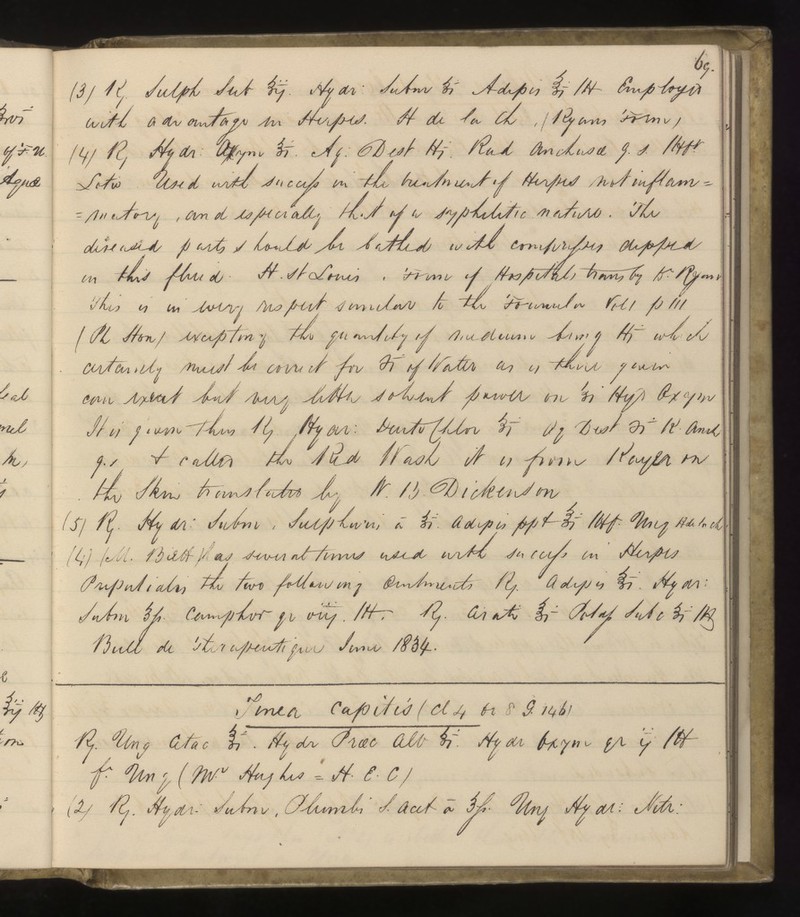 69.
(3) ℞ Sulph Sub ʒij. Hydr: Subm ʒi Adipis ℥i M Employed
with advantage in Herpes. H de la Ch. (Ryans Form)
(4) ℞ Hydr: Oxym ʒi. Aq. Dest ℔i. Rad Anchusæ q.s. M ft
Lotio Used with success in the treatment of Herpes not inflam=
=matory, and especially that of a syphilitic nature. The
diseased parts should be bathed with compresses dipped
in this fluid. H. St Louis. Form of Hospitals trans by Dr. Ryan
This is in every respect similar to the Formula Vol 1 p 111
(Ph Hon) excepting the quantity of medium being ℔i which
certainly must be correct for ℥i of Water as is there given
can exert but very little solvent power on ʒi Hyd Oxym
It is given thus ℞ Hydr: Deuto Chlor ʒi Aq Dest ℥i R. Anch
q.s & called the Red Wash it is from Rayer on
the Skin translated by W. B. Dickenson
(5) ℞. Hydr: Subm, Sulphuris ā ʒi. Adipis ppt ℥i M ft. Ung H de la ch
(4) M. has several times used with success in Herpes
Preputialis the two following Ointments ℞. Adipis ℥i. Hydr:
Subm ʒſs. Camphor gr viij. M. ℞. Cerati ℥i Potass Subc ʒi M
Bull de Therapeutique June 1834.
Tinea Capitis (Cl 4 Or 8 G. 146)
℞ Ung Cetac ℥i. Hydr Præc Alb ʒi. Hydr Oxym gr ij M
ft Ung (Mr Hughes = H. E. C)
(2) ℞. Hydr: Subm, Plumbi S. Acet ā ʒſs. Ung Hydr: Nitr: